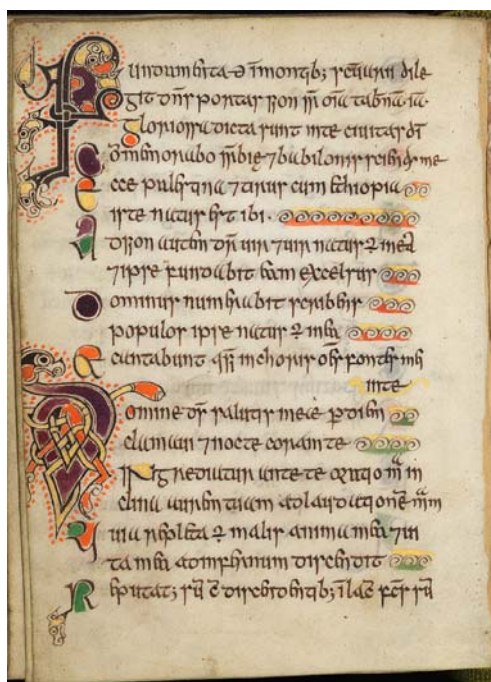 Fundamenta ei in montib; scuarii dile
git dns portas sion sr oia tabnac ia
gloriosa dicta sunt in te ciuitas di
Comemorabo supbie 7 babilonis scientes me
Ecce palestina 7 tirus cum ethiopia
iste natus est ibi
Ad sion autem dr uir 7 uir natus ÷ in ea
7 ipse fundabit eam excelsus
Dominus numerabit scribens
populos ipse natus ÷ in ea
Et cantabunt qsi in choris oms fontes mei
in te
Domine ds salutis meae p diem
clamaui 7 nocte coram te
Ingrediatur ante te oratio ma in
clina aurem tuam ad laudationem mam
Quia repleta ÷ malis anima mea 7 ui
ta mea ad infernum discendit
Reputat; su c discendentib; i lac fcs su